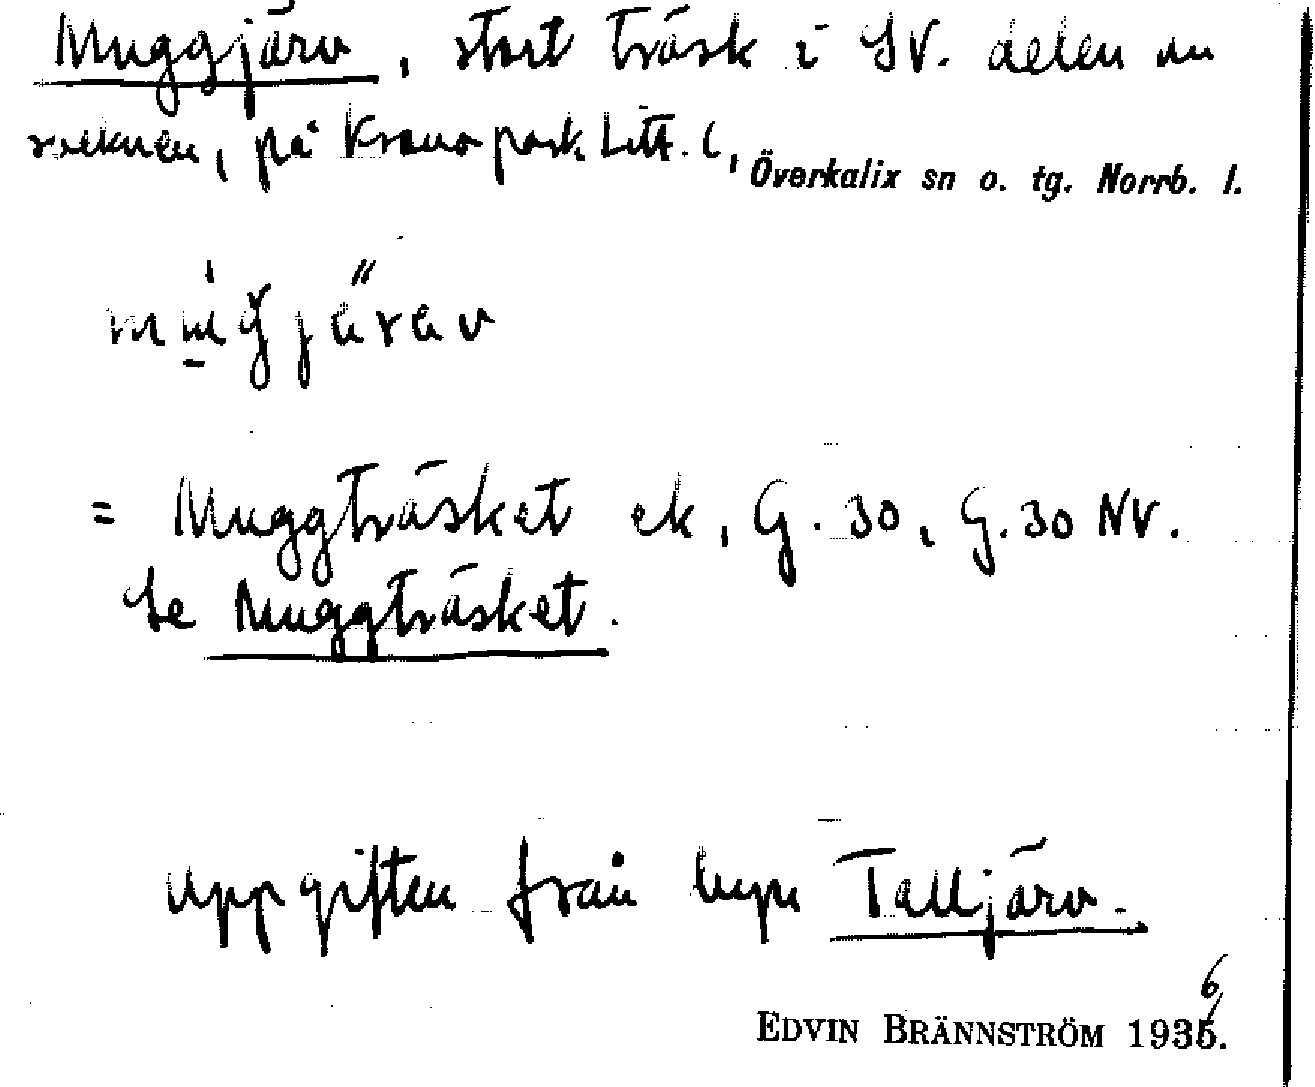 Muggjärv, stort träsk i SV. delen av
socknen, på Kronopark Litt. C, Överkalix sn o. tg. Norrb. l.
= Muggträsket ek, G. 30, G. 30 NV.
Se Muggträsket.
Uppgiften från byn Talljärv.
EDVIN BRÄNNSTRÖM 1936.